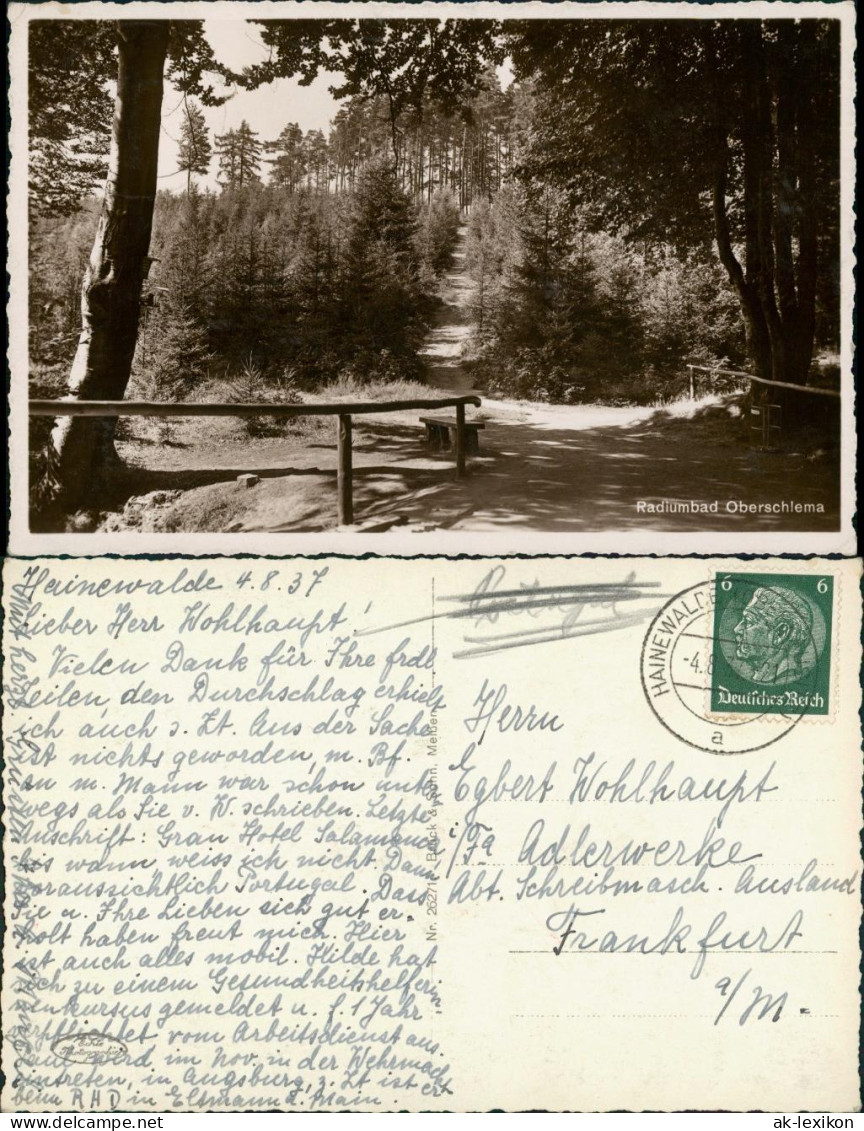 Radiumbad Oberschlema
Hainewalde 4.8.37
Lieber Herr Wohlhaupt!
Vielen Dank für Ihre frdl
Zeilen, den Durchschlag erhielt
ich auch s. Zt. Aus der Sache
ist nichts geworden, m. Bf.
an m. Mann war schon unter
wegs als Sie v. W. schrieben. Letzte
Anschrift: Gran Hotel Salamanca
bis wann weiss ich nicht. Dann
voraussichtlich Portugal. Dass
Sie u. Ihre Lieben sich gut er-
holt haben freut mich. Hier
ist auch alles mobil. Hilde hat
sich zu einem Gesundheitshelferin
nenkursus gemeldet u. f. 1 Jahr
verpflichtet vom Arbeitsdienst aus.
wird im Nov. in der Wehrmacht
eintreten, in Augsburg, z. Zt ist er
beim RHD in Eltmann a. Main.
Nr. 26271 Brück & Sohn, Meißen
HAINEWALDE
-4.8
a
6 6
Deutsches Reich
Herrn
Egbert Wohlhaupt
i/Fa Adlerwerke
Abt. Schreibmasch. Ausland
Frankfurt
a/M-
ak-lexikon